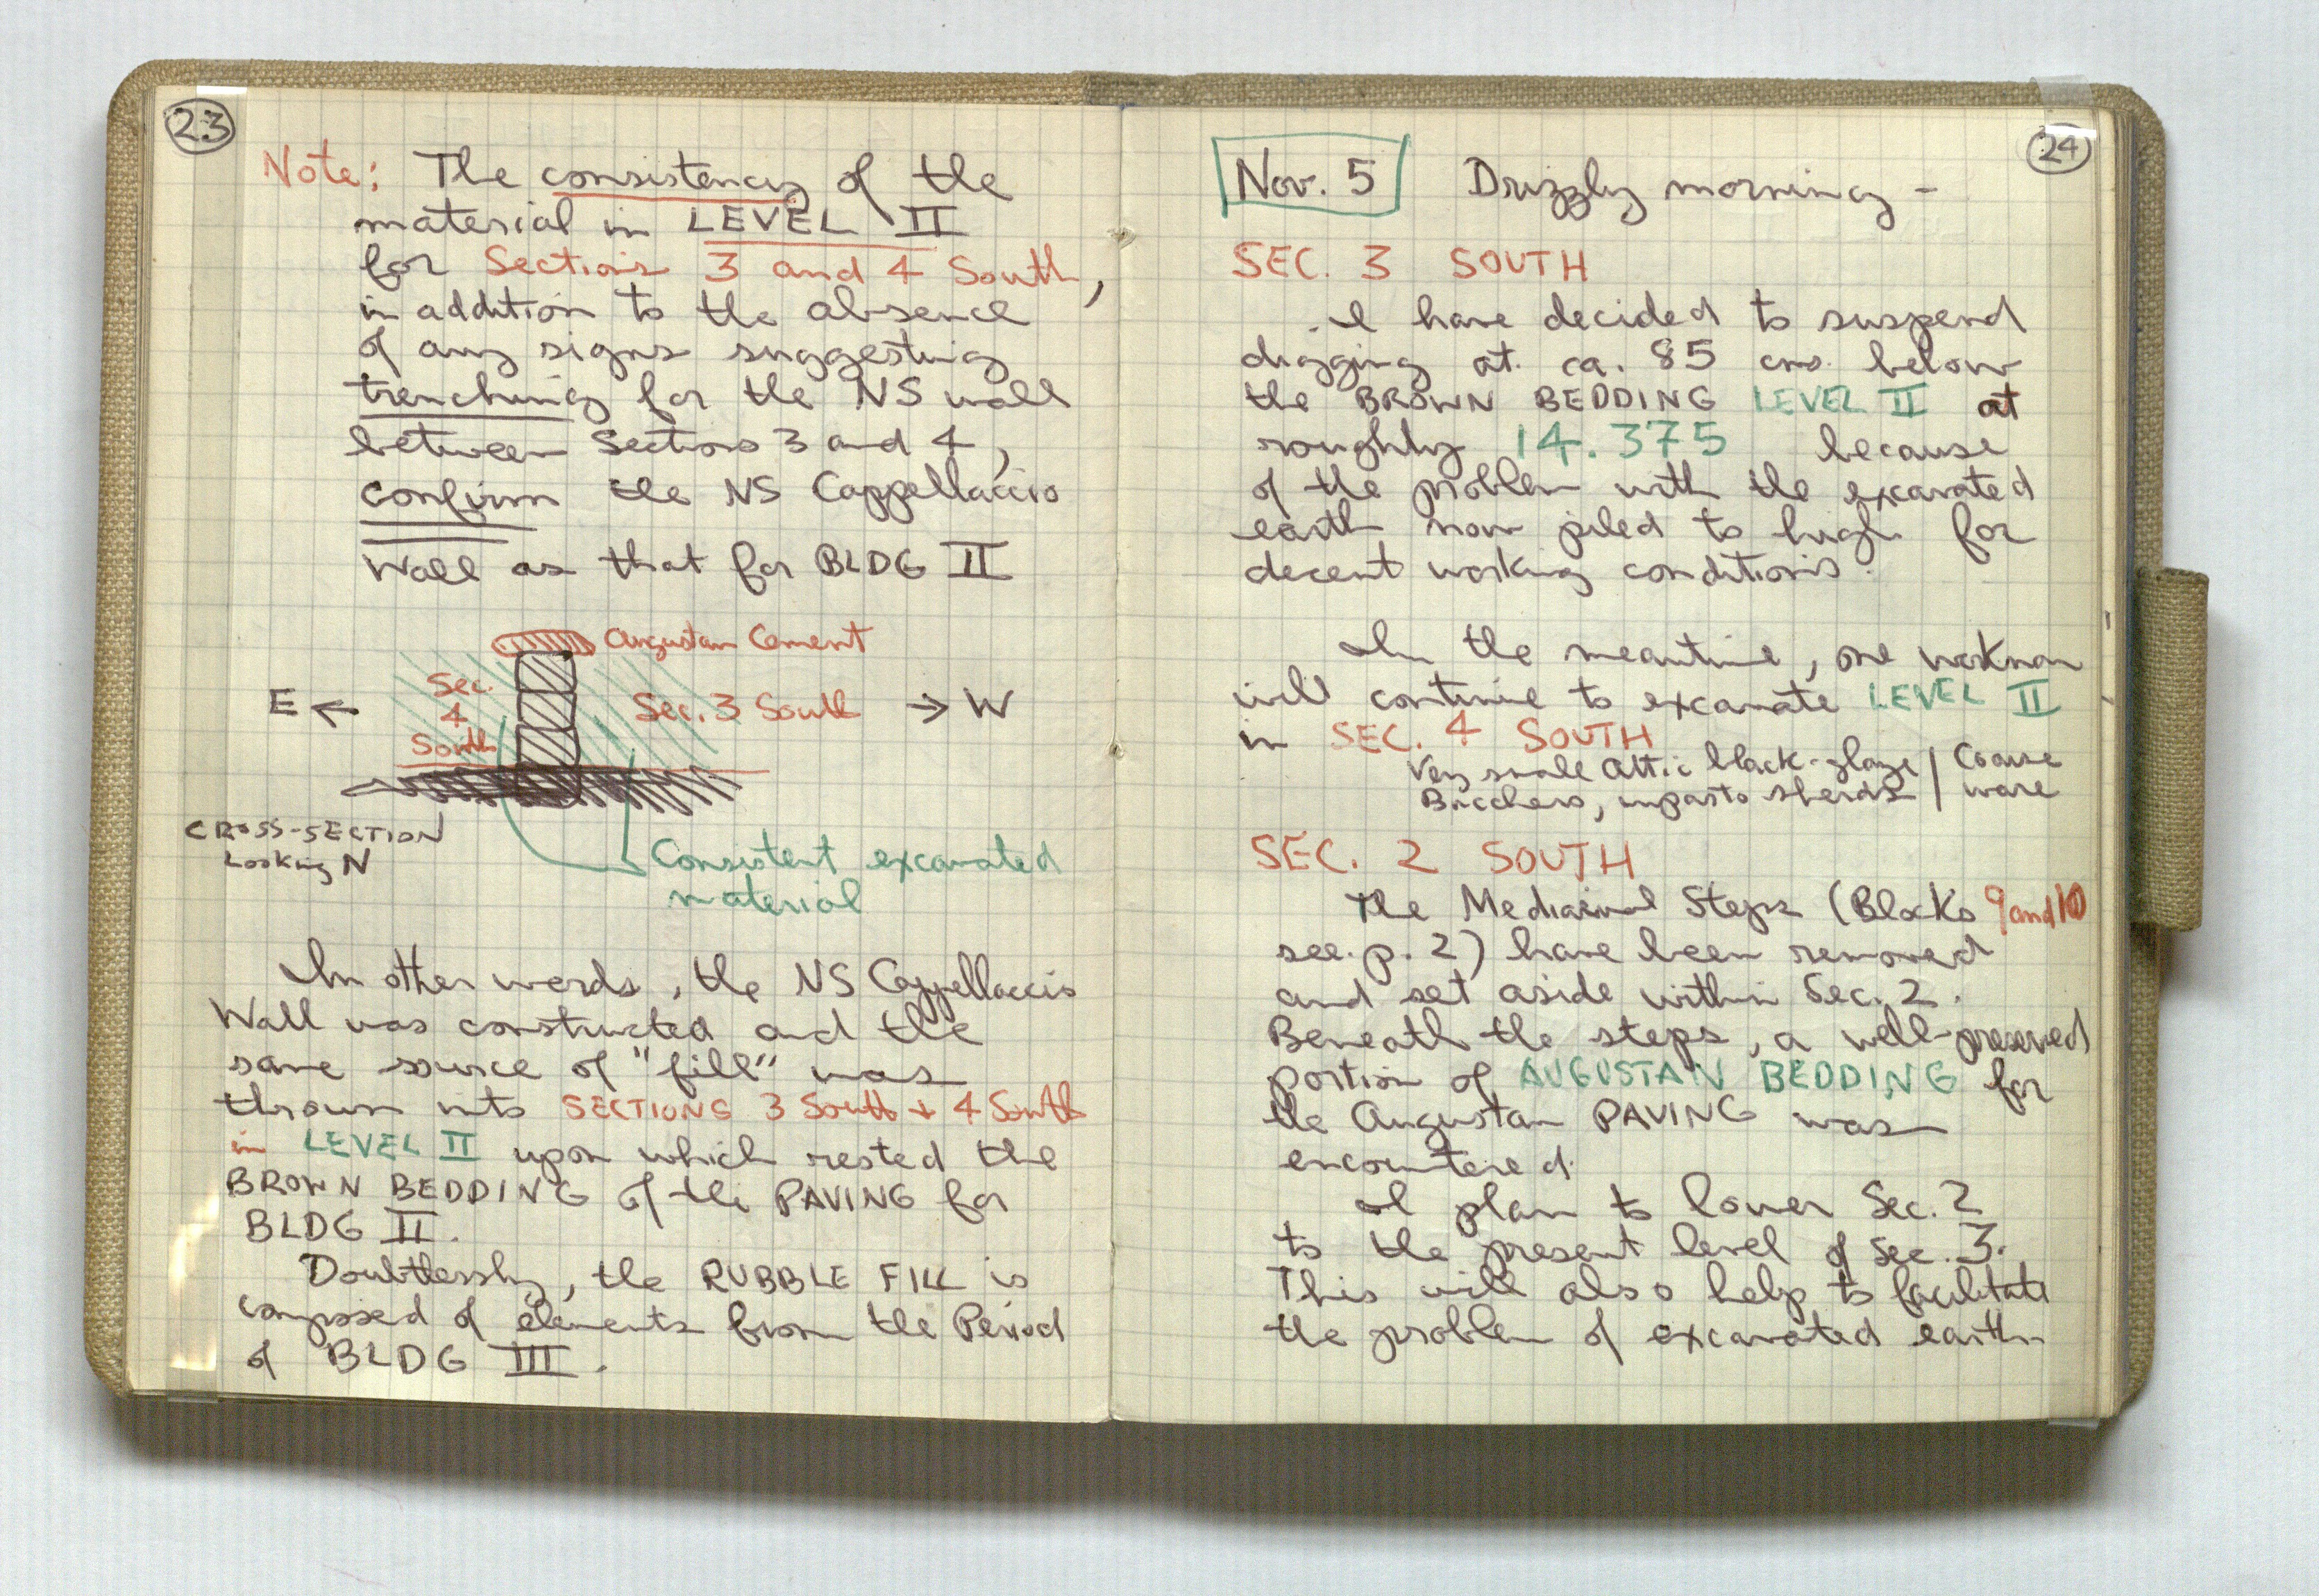 23
Note: The consistency of the
material in LEVEL II
for Sections 3 and 4 South,
in addition to the absence
of any signs suggesting
trenching for the NS wall
between Sections 3 and 4,
confirm the NS Cappellaccio
Wall as that for BLDG II
Augustan Cement
Sec.
4
South
E ←
Sec. 3 South
→ W
CROSS-SECTION
Looking N
Consistent excavated
material
In other words, the NS Cappellaccio
Wall was constructed and the
same source of "fill" was
thrown into SECTIONS 3 South + 4 South
in LEVEL II upon which rested the
BROWN BEDDING of the PAVING for
BLDG II.
Doubtlessly, the RUBBLE FILL is
composed of elements from the Period
of BLDG III.
24
Nov. 5 Drizzly morning -
SEC. 3 SOUTH
I have decided to suspend
digging at ca. 85 cms. below
the BROWN BEDDING LEVEL II at
roughly 14.375 because
of the problem with the excavated
earth now piled to high for
decent working conditions.
In the meantime, one workman
will continue to excavate LEVEL II
in SEC. 4 SOUTH
Very small Attic black-glaze | Coarse
Bucchero, impasto sherds | ware
SEC. 2 SOUTH
The Mediaeval Steps (Blocks 9 and 10
see. p. 2) have been removed
and set aside within Sec. 2.
Beneath the steps, a well-preserved
portion of AUGUSTAN BEDDING for
the Augustan PAVING was
encountered.
I plan to lower Sec. 2
to the present level of Sec. 3.
This will also help to facilitate
the problem of excavated earth